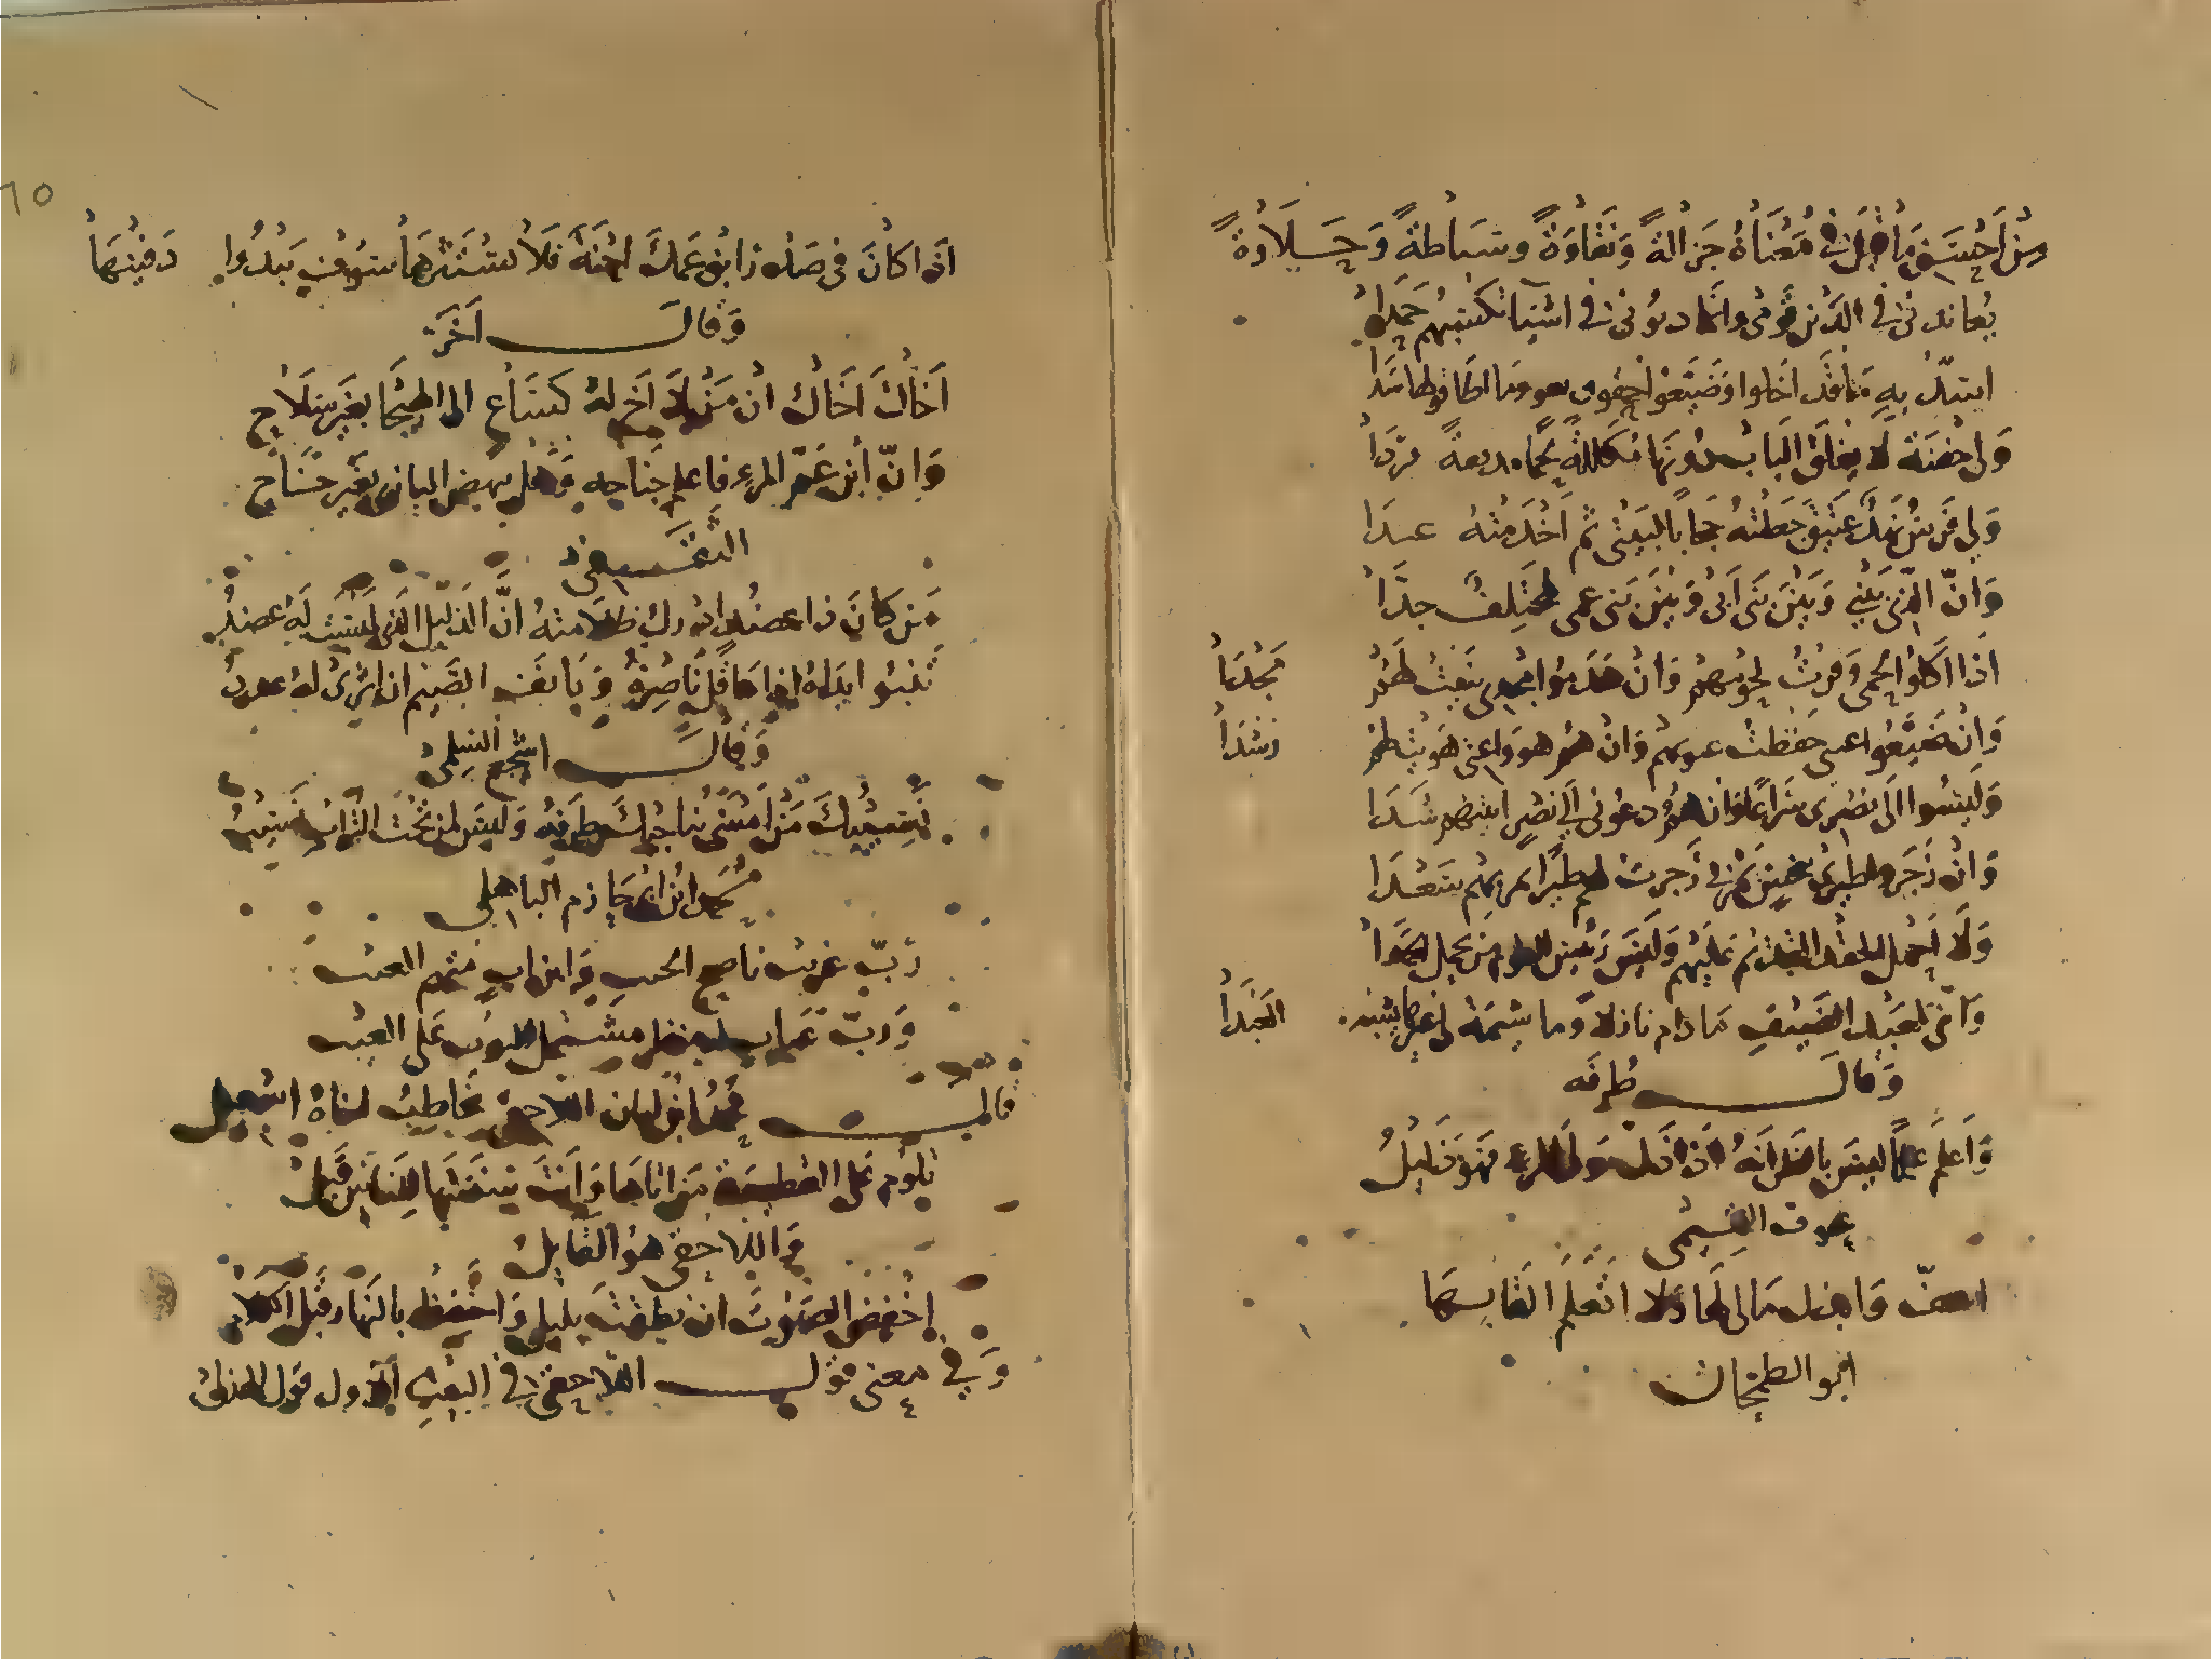 من احسن ما قيل في معناه جزالة ونقاوة وسباطة وحلاوة
يعاتبني في الدين قومي وانما ديوني في اشيا تكسبهم حمدا
اسد به ما قد اخلوا وضيعوا حقوق ثغور ما اطاقوا لها سدا
ولي جفنة لا يغلق الباب دونها مكللة لحما مدفقة ثردا
ولي فرس نهد عتيق جعلته حجابا لبيتي ثم اخدمته عبدا
وان الذي بيني وبين بني ابي وبين بني عمي لمختلف جدا
اذا اكلوا لحمي وفرت لحومهم وان هدموا مجدي بنيت لهم مجدا
وان ضيعوا غيبي حفظت غيوبهم وان هم هووا غيي هويت لهم رشدا
وليسوا الى نصري سراعا وان هم دعوني الى نصر اتيتهم شدا
وان زجروا طيري بنحس تمر بي زجرت لهم طيرا تمر بهم سعدا
ولا احمل الحقد القديم عليهم وليس رئيس القوم من يحمل الحقدا
واني لعبد الضيف ما دام نازلا وما شيمة لي غيرها تشبه العبدا
وقال طرفه
واعلم علما ليس بالظن انه اذا ذل مولى المرء فهو ذليل
عوف القسيمى
ابو الطمحان
اذا كان في صدر ابن عمك احنة فلا تستثرها سوف يبدوا دفينها
وقال اخر
اخاك اخاك ان من لا اخ له كساع الى الهيجا بغير سلاح
وان ابن عم المرء فاعلم جناحه وهل ينهض البازي بغير جناح
الثقفي
من كان ذا عضد يدرك ظلامته ان الذليل الذي ليست له عضد
تنبو يداه اذا ما قل ناصره ويانف الضيم ان اثرى له عدد
وقال اشجع السلمى
نسيبك من امسى يناجيك طرفه وليس لمن تحت التراب نسيب
محمد ابن ابي حازم الباهلى
رب غريب ناصح الجيب وابن اب متهم الغيب
ورب عياب له منظر مشتمل الثوب على العيب
قال محمد ابن ابان اللاحقى يخاطب اخاه اسمعيل
تلوم على القطيعة من اتاها وانت سننتها للناس قبل
واللاحقى هو القايل
اخفض الصوت ان نطقت بليل واحتفظ بالنهار قبل الكلام
وفي معنى قول اللاحقى في البيت الاول قول الهذلى